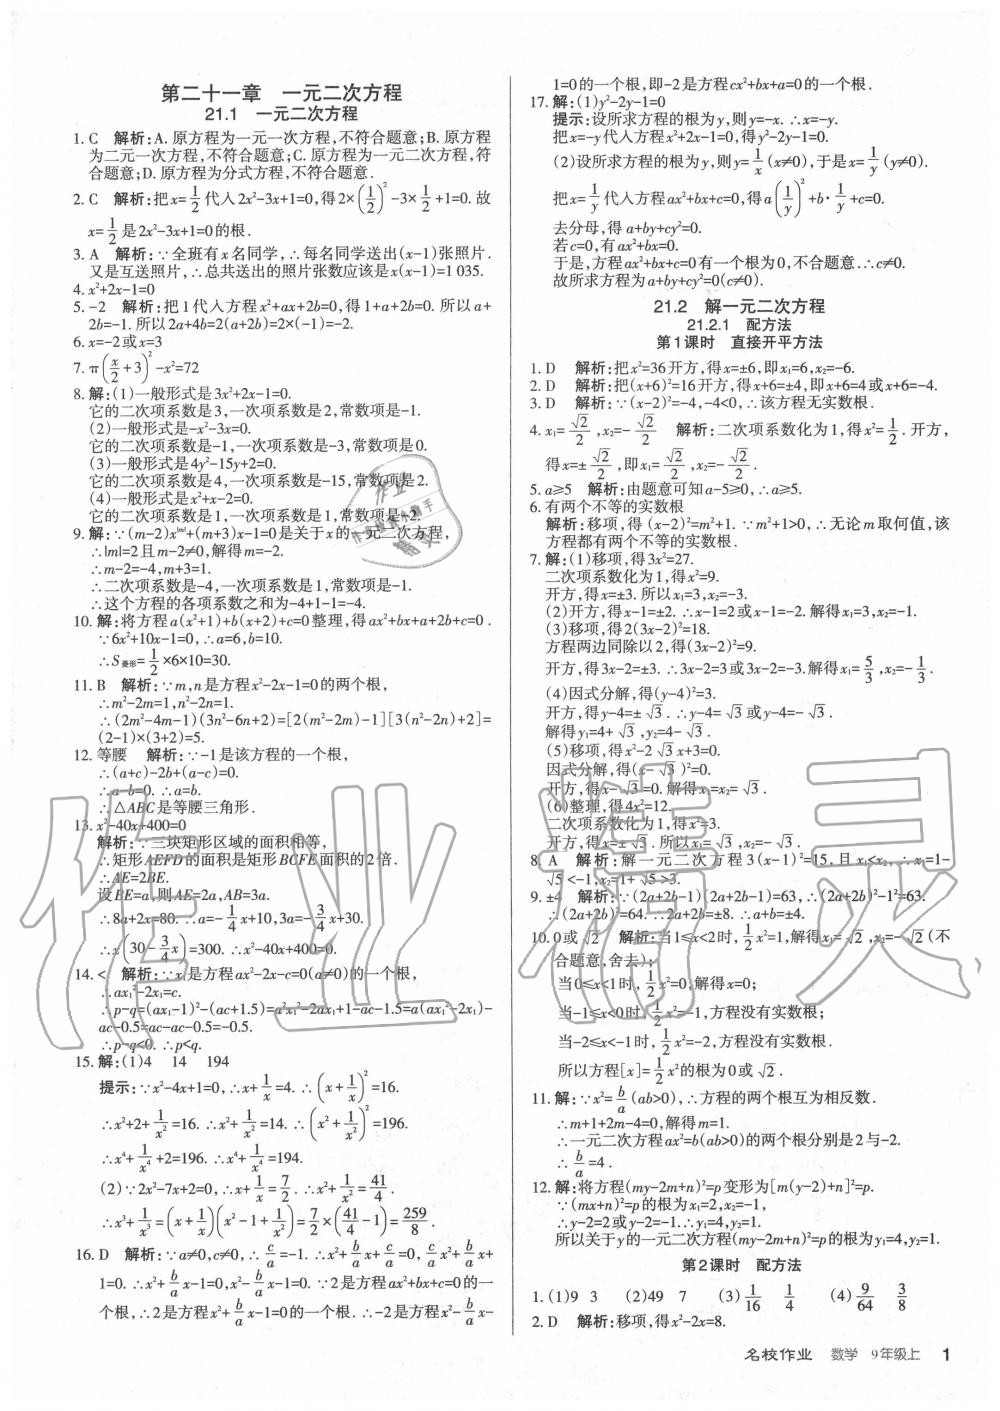 第二十一章 一元二次方程
21.1 一元二次方程
1. C 解析:A. 原方程为一元一次方程,不符合题意;B. 原方程
为二元一次方程,不符合题意;C. 原方程为一元二次方程,符
合题意;D. 原方程为分式方程,不符合题意.
2. C 解析:把x=1/2代入2x²-3x+1=0,得2×(1/2)²-3×1/2+1=0. 故
x=1/2是2x²-3x+1=0的根.
3. A 解析:∵全班有x名同学,∴每名同学送出(x-1)张照片.
又是互送照片,∴总共送出的照片张数应该是x(x-1)=1 035.
4. x²+2x-1=0
5. -2 解析:把1代入方程x²+ax+2b=0,得1+a+2b=0. 所以a+
2b=-1. 所以2a+4b=2(a+2b)=2×(-1)=-2.
6. x=-2或x=3
7. π(x/2+3)²-πx²=72
8. 解:(1)一般形式是3x²+2x-1=0.
它的二次项系数是3,一次项系数是2,常数项是-1.
(2)一般形式是-x²-3x=0.
它的二次项系数是-1,一次项系数是-3,常数项是0.
(3)一般形式是4y²-15y+2=0.
它的二次项系数是4,一次项系数是-15,常数项是2.
(4)一般形式是x²+x-2=0.
它的二次项系数是1,一次项系数是1,常数项是-2.
9. 解:∵(m-2)x^|m|+(m+3)x-1=0是关于x的一元二次方程,
∴|m|=2且m-2≠0,解得m=-2.
∴m-2=-4,m+3=1.
∴二次项系数是-4,一次项系数是1,常数项是-1.
∴这个方程的各项系数之和为-4+1-1=-4.
10. 解:将方程a(x²+1)+b(x+2)+c=0整理,得ax²+bx+a+2b+c=0.
∵6x²+10x-1=0,∴a=6,b=10.
∴S菱形=1/2×6×10=30.
11. B 解析:∵m,n是方程x²-2x-1=0的两个根,
∴m²-2m=1,n²-2n=1.
∴(2m²-4m-1)(3n²-6n+2)=[2(m²-2m)-1][3(n²-2n)+2]=
(2-1)×(3+2)=5.
12. 等腰 解析:∵-1是该方程的一个根,
∴(a+c)-2b+(a-c)=0.
∴a-b=0. ∴a=b.
∴△ABC是等腰三角形.
13. x²-40x+400=0
解析:∵三块矩形区域的面积相等,
∴矩形AEFD的面积是矩形BCFE面积的2倍.
∴AE=2BE.
设BE=a,则AE=2a,AB=3a.
∴8a+2x=80. ∴a=-1/4x+10,3a=-3/4x+30.
∴x(30-3/4x)=300. ∴x²-40x+400=0.
14. < 解析:∵x₁是方程ax²-2x-c=0(a≠0)的一个根,
∴ax₁²-2x₁=c.
∴p-q=(ax₁-1)²-(ac+1.5)=a²x₁²-2ax₁+1-ac-1.5=a(ax₁²-2x₁)-
ac-0.5=ac-ac-0.5=-0.5.
∴p-q<0. ∴p<q.
15. 解:(1)4 14 194
提示:∵x²-4x+1=0,∴x+1/x=4. ∴(x+1/x)²=16.
∴x²+2+1/x²=16. ∴x²+1/x²=14. ∴(x²+1/x²)²=196.
∴x⁴+1/x⁴+2=196. ∴x⁴+1/x⁴=194.
(2)∵2x²-7x+2=0,∴x+1/x=7/2. ∴x²+1/x²=41/4.
∴x³+1/x³=(x+1/x)(x²-1+1/x²)=7/2×(41/4-1)=259/8.
16. D 解析:∵a≠0,c≠0,∴c/a=-1. ∴x²+b/a x+c/a=0,c/a x²+b/a x+
1=0. ∴x²+b/a x-1=0,-x²+b/a x+1=0. ∵2是方程ax²+bx+c=0的一
个根,∴2是方程x²+b/a x-1=0的一个根. ∴-2是方程x²-b/a x-
1=0的一个根,即-2是方程cx²+bx+a=0的一个根.
17. 解:(1)y²-2y-1=0
提示:设所求方程的根为y,则y=-x. ∴x=-y.
把x=-y代入方程x²+2x-1=0,得y²-2y-1=0.
(2)设所求方程的根为y,则y=1/x(x≠0),于是x=1/y(y≠0).
把x=1/y代入方程ax²+bx+c=0,得a(1/y)²+b·1/y+c=0.
去分母,得a+by+cy²=0.
若c=0,有ax²+bx=0.
于是,方程ax²+bx+c=0有一个根为0,不合题意. ∴c≠0.
故所求方程为a+by+cy²=0(c≠0).
21.2 解一元二次方程
21.2.1 配方法
第1课时 直接开平方法
1. D 解析:把x²=36开方,得x=±6,即x₁=6,x₂=-6.
2. D 解析:把(x+6)²=16开方,得x+6=±4,即x+6=4或x+6=-4.
3. D 解析:∵(x-2)²=-4,-4<0,∴该方程无实数根.
4. x₁=√2/2,x₂=-√2/2 解析:二次项系数化为1,得x²=1/2. 开方,
得x=±√2/2,即x₁=√2/2,x₂=-√2/2.
5. a≥5 解析:由题意可知a-5≥0,∴a≥5.
6. 有两个不等的实数根
解析:移项,得(x-2)²=m²+1. ∵m²+1>0,∴无论m取何值,该
方程都有两个不等的实数根.
7. 解:(1)移项,得3x²=27.
二次项系数化为1,得x²=9.
开方,得x=±3. 所以x₁=3,x₂=-3.
(2)开方,得x-1=±2. ∴x-1=2或x-1=-2. 解得x₁=3,x₂=-1.
(3)移项,得2(3x-2)²=18.
方程两边同除以2,得(3x-2)²=9.
开方,得3x-2=±3. ∴3x-2=3或3x-2=-3. 解得x₁=5/3,x₂=-1/3.
(4)因式分解,得(y-4)²=3.
开方,得y-4=±√3. ∴y-4=√3或y-4=-√3.
解得y₁=4+√3,y₂=4-√3.
(5)移项,得x²-2√3x+3=0.
因式分解,得(x-√3)²=0.
开方,得x-√3=0. 解得x₁=x₂=√3.
(6)整理,得4x²=12.
二次项系数化为1,得x²=3.
开方,得x=±√3. 所以x₁=√3,x₂=-√3.
8. A 解析:解一元二次方程3(x-1)²=15. 且x₁<x₂,∴x₁=1-
√5<-1,x₂=1+√5>3.
9. ±4 解析:∵(2a+2b-1)(2a+2b+1)=63,∴(2a+2b)²-1²=63.
∴(2a+2b)²=64. ∴2a+2b=±8. ∴a+b=±4.
10. 0或√2 解析:当1≤x<2时,1/2x²=1,解得x₁=√2,x₂=-√2(不
合题意,舍去);
当0≤x<1时,1/2x²=0,解得x=0;
当-1≤x<0时,1/2x²=-1,方程没有实数根;
当-2≤x<-1时,1/2x²=-2,方程没有实数根.
所以方程[x]=1/2x²的根为0或√2.
11. 解:∵x²=b/a(ab>0),∴方程的两个根互为相反数.
∴m+1+2m-4=0,解得m=1.
∴一元二次方程ax²=b(ab>0)的两个根分别是2与-2.
∴b/a=4.
12. 解:将方程(my-2m+n)²=p变形为[m(y-2)+n]²=p.
∵(mx+n)²=p的根为x₁=2,x₂=-1,
∴y-2=2或y-2=-1. ∴y₁=4,y₂=1.
所以关于y的一元二次方程(my-2m+n)²=p的根为y₁=4,y₂=1.
第2课时 配方法
1. (1)9 3 (2)49 7 (3)1/16 1/4 (4)9/64 3/8
2. D 解析:移项,得x²-2x=8.
名校作业 数学 9年级上 1
作业精灵